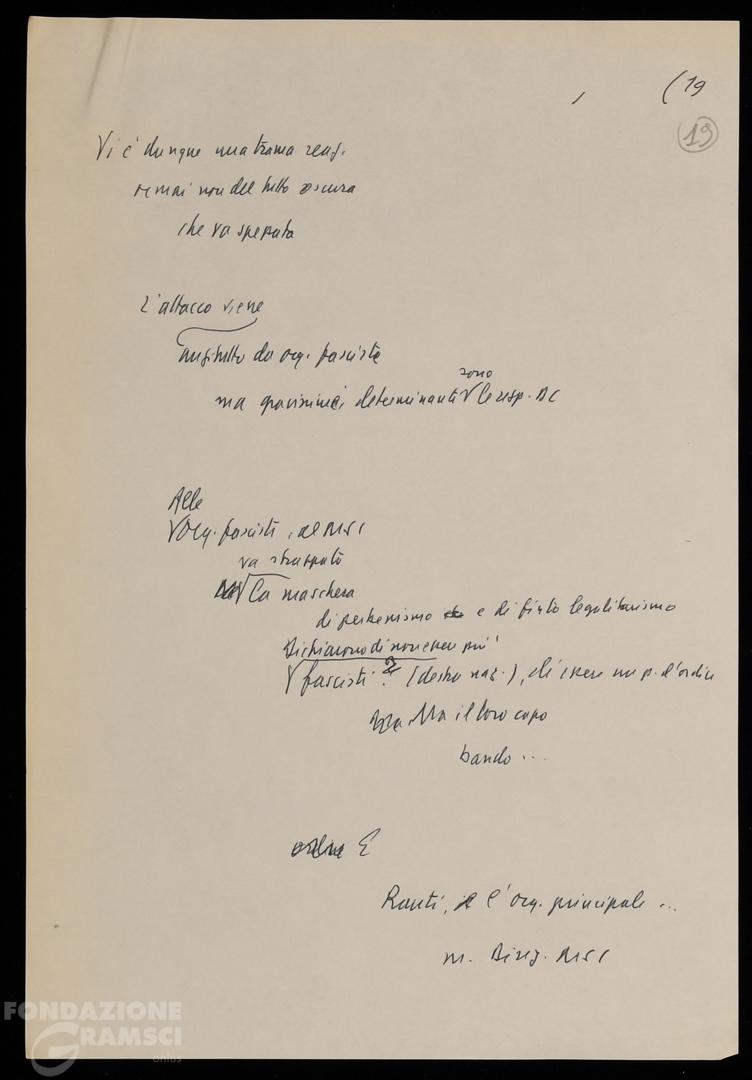 (19
19
Vi è dunque una trama reaz.
ormai non del tutto oscura
che va spezzata
L'attacco viene
anzitutto da org. fasciste
sono
ma gravissime, determinanti V le resp. DC
Alle
V Org. fasciste, al MSI
va strappata
V la maschera
di perbenismo e di finto legalitarismo
Dichiarono di non esser più
V fascisti? (destra naz.), di essere un p. d'ordine
Ma il loro capo
bando ...
E
Rauti, è l'org. principale ...
m. Direz. MSI
FONDAZIONE
GRAMSCI
onlus